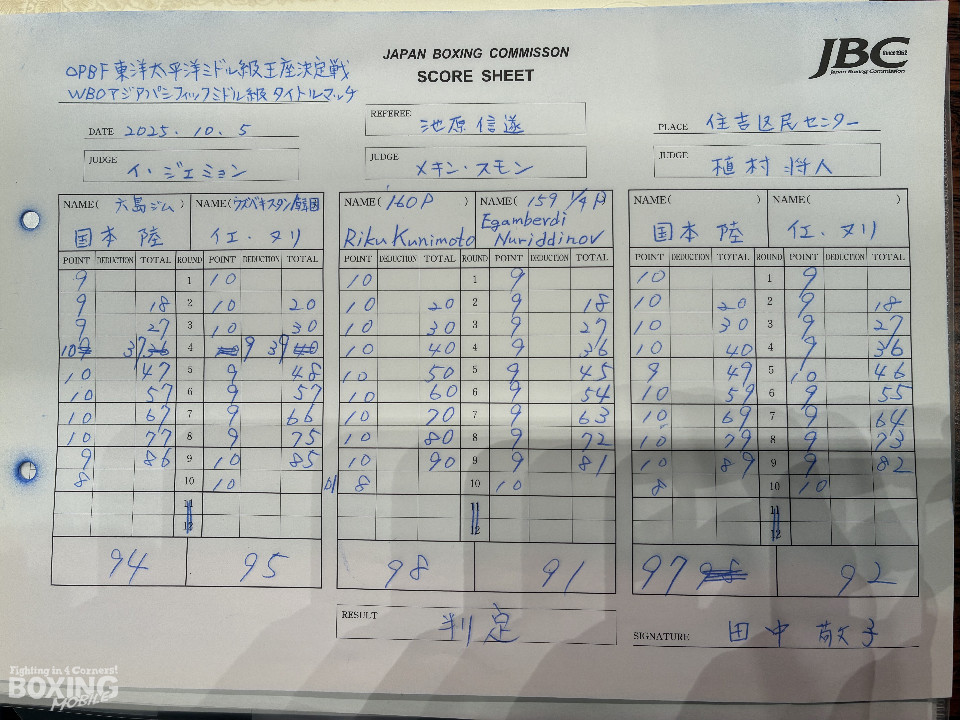 JAPAN BOXING COMMISSON
SCORE SHEET
JBC Since 1952
Japan Boxing Commission
OPBF東洋太平洋ミドル級王座決定戦
WBOアジアパシフィックミドル級タイトルマッチ
DATE 2025.10.5
REFEREE 池原信遂
PLACE 住吉区民センター
JUDGE イ・ジェミョン
JUDGE メキン・スモン
JUDGE 植村将人
NAME( 六島ジム ) NAME(ウズベキスタン/韓国) NAME( 160P ) NAME( 159 1/4 P) NAME( ) NAME( )
国本 陸 イエ・ヌリ Riku Kunimoto Egamberdi Nuriddinov 国本 陸 イエ・ヌリ
POINT DEDUCTION TOTAL ROUND POINT DEDUCTION TOTAL POINT DEDUCTION TOTAL ROUND POINT DEDUCTION TOTAL POINT DEDUCTION TOTAL ROUND POINT DEDUCTION TOTAL
9 1 10 10 1 9 10 1 9
9 18 2 10 20 10 20 2 9 18 10 20 2 9 18
9 27 3 10 30 10 30 3 9 27 10 30 3 9 27
10 37 4 9 39 10 40 4 9 36 10 40 4 9 36
10 47 5 9 48 10 50 5 9 45 9 49 5 10 46
10 57 6 9 57 10 60 6 9 54 10 59 6 9 55
10 67 7 9 66 10 70 7 9 63 10 69 7 9 64
10 77 8 9 75 10 80 8 9 72 10 79 8 9 73
9 86 9 10 85 10 90 9 9 81 10 89 9 9 82
8 10 10 D1 8 10 10 8 10 10
11 11 11
12 12 12
94 95 98 91 97 92
RESULT 判定
SIGNATURE 田中敬子
Fighting in 4 Corners!
BOXING
MOBILE